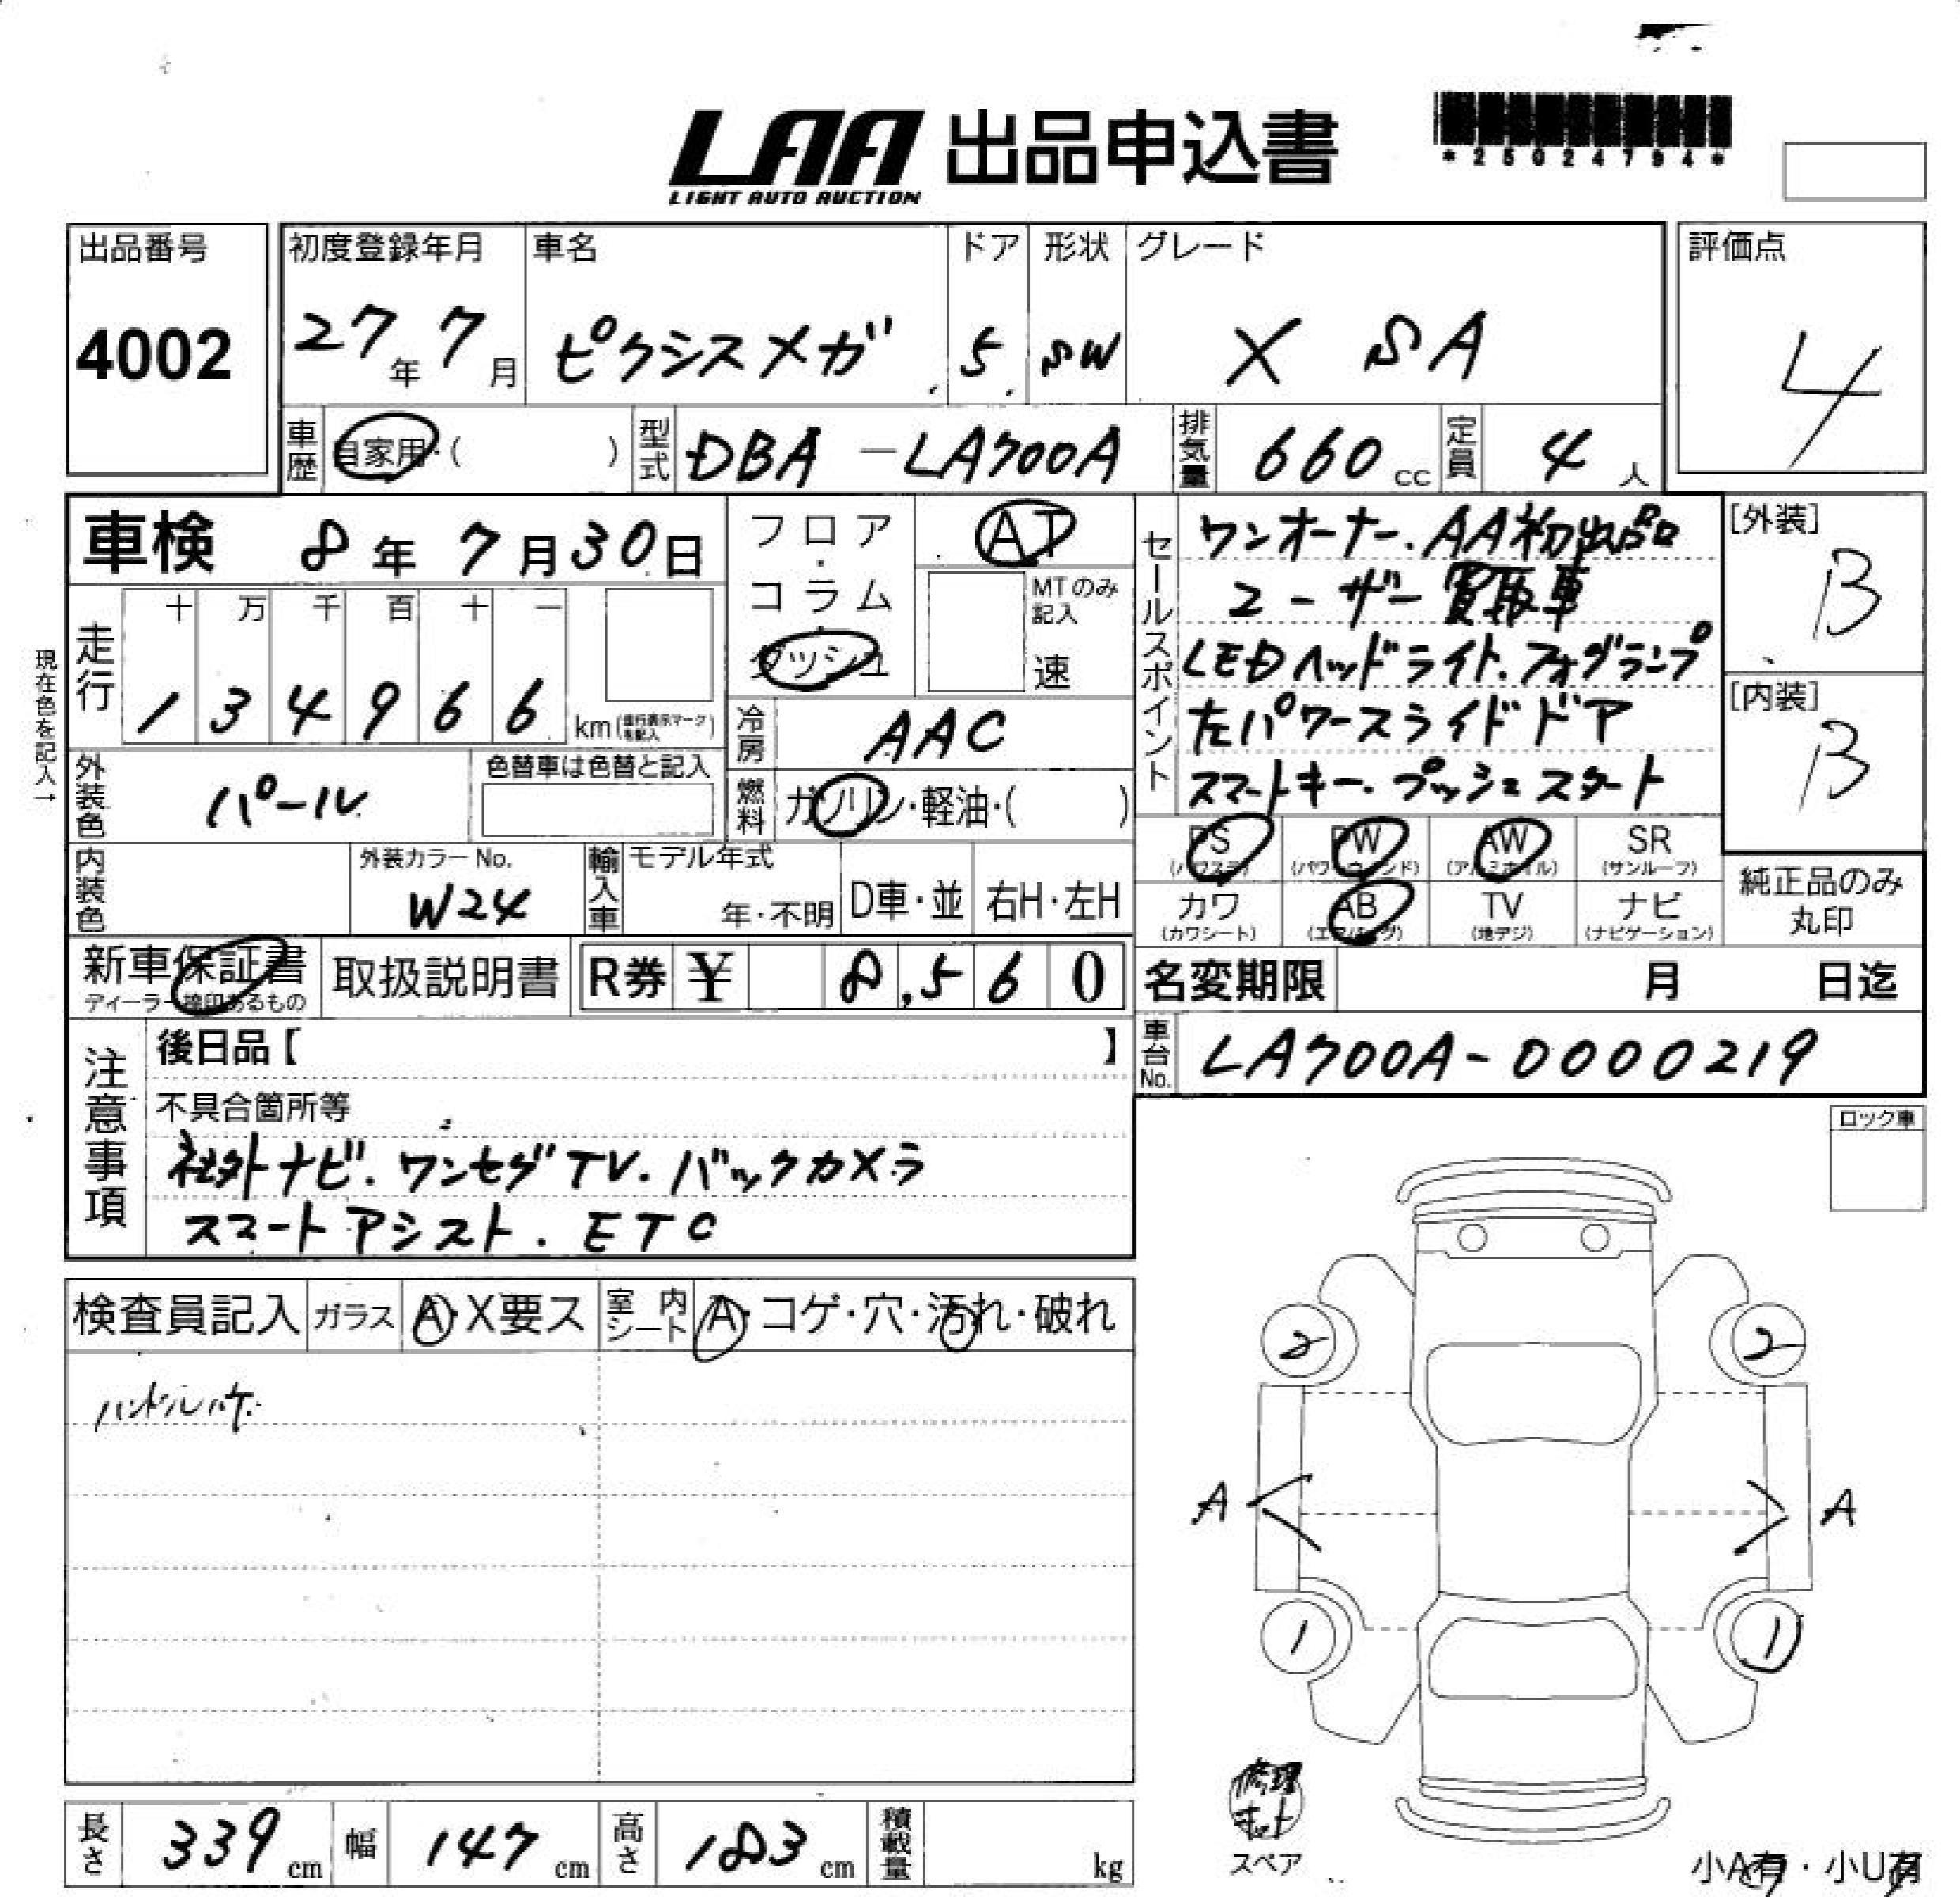 LAA 出品申込書
LIGHT AUTO AUCTION
*25024794*
出品番号
4002
初度登録年月
27年7月
車名
ピクシスメガ
ドア
5
形状
SW
グレード
X SA
評価点
4
車歴
自家用・( )
型式
DBA-LA700A
排気量
660cc
定員
4人
車検 8年7月30日
フロア・コラム・ダッシュ
AT
MTのみ記入
速
セールスポイント
ワンオーナー.AA初出品
ユーザー買取車
LEDヘッドライト.フォグランプ
左パワースライドドア
スマートキー.プッシュスタート
[外装]
B
[内装]
B
現在色を記入→
走行
十 万 千 百 十 一
1 3 4 9 6 6 km(走行表示マークを記入)
冷房
AAC
外装色
パール
色替車は色替と記入
燃料
ガソリン・軽油・( )
PS (パワステ)
PW (パワーウィンド)
AW (アルミホイル)
SR (サンルーフ)
内装色
外装カラーNo.
W24
輸入車
モデル年式
年・不明
D車・並
右H・左H
カワ (カワシート)
AB (エアバッグ)
TV (地デジ)
ナビ (ナビゲーション)
純正品のみ丸印
新車保証書
ディーラー捺印あるもの
取扱説明書
R券 ¥ 8,560
名変期限 月 日迄
車台No.
LA700A-0000219
注意事項
後日品【 】
不具合箇所等
社外ナビ.ワンセグTV.バックカメラ
スマートアシスト.ETC
ロック車
検査員記入
ガラス
A・X要ス
室内シート
A・コゲ・穴・汚れ・破れ
ハンドルハゲ
2
2
A
A
1
1
修理キット
スペア
小A有・小U有
長さ 339cm
幅 147cm
高さ 183cm
積載量 kg